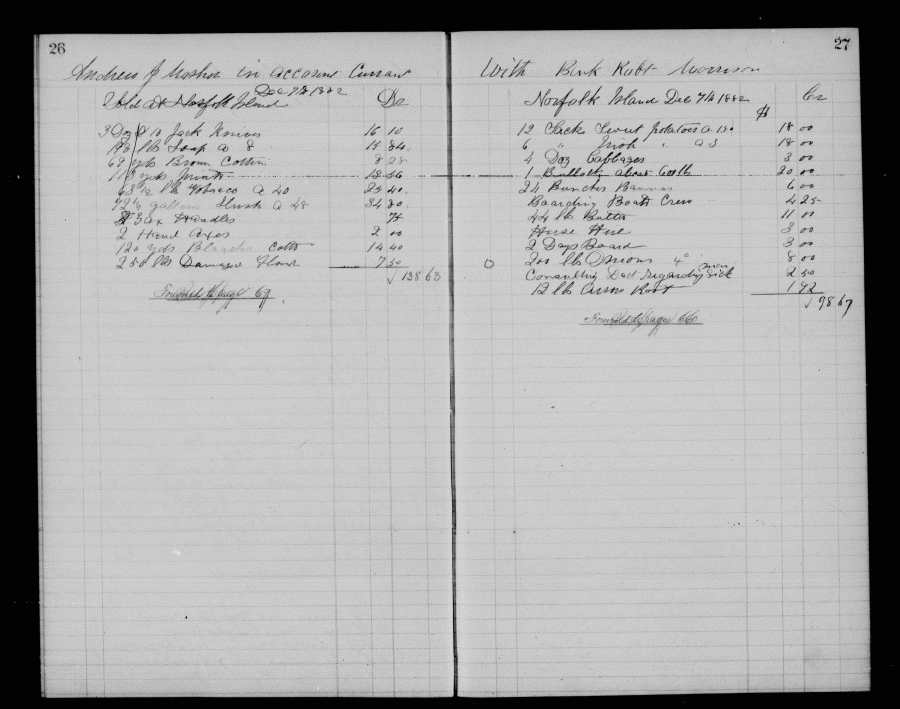 26
Andrew J Mosher in account Currant
Dec 7th 1882
Sold at Norfolk Island Dr
3 Doz & 10 Jack Knives 16 10
lbs Soap a 8 15 84
yds Brown Cotton 8
yds Prints 18 56
63 1/2 lb Tobacco a 40 25 40
72 1/2 gallons Slush a 48 34 80
3 ax Handles 74
2 Hand axes 2 00
120 yds Bleached Cotton 14 40
250 lbs Damaged Flour 7 50
138 63
Forward to page 67
27
With Bark Robt Morrison
Norfolk Island Dec 7th 1882 Cr
$
12 Sacks Sweet potatoes a 150 18 00
6 " Irish " a 3 18 00
4 Doz Cabbages 3 00
1 Bullock about 600 lb 20 00
24 Bunches Bananas 6 00
Boarding Boats Crew 4 25
44 lb Butter 11 00
Horse Hire 3 00
2 Days Board 3 00
200 lbs Onions 4c 8 00
Consulting Doct Regarding Sick man 2 50
12 lbs Arrow Root 1 92
98 67
Forward to page 66